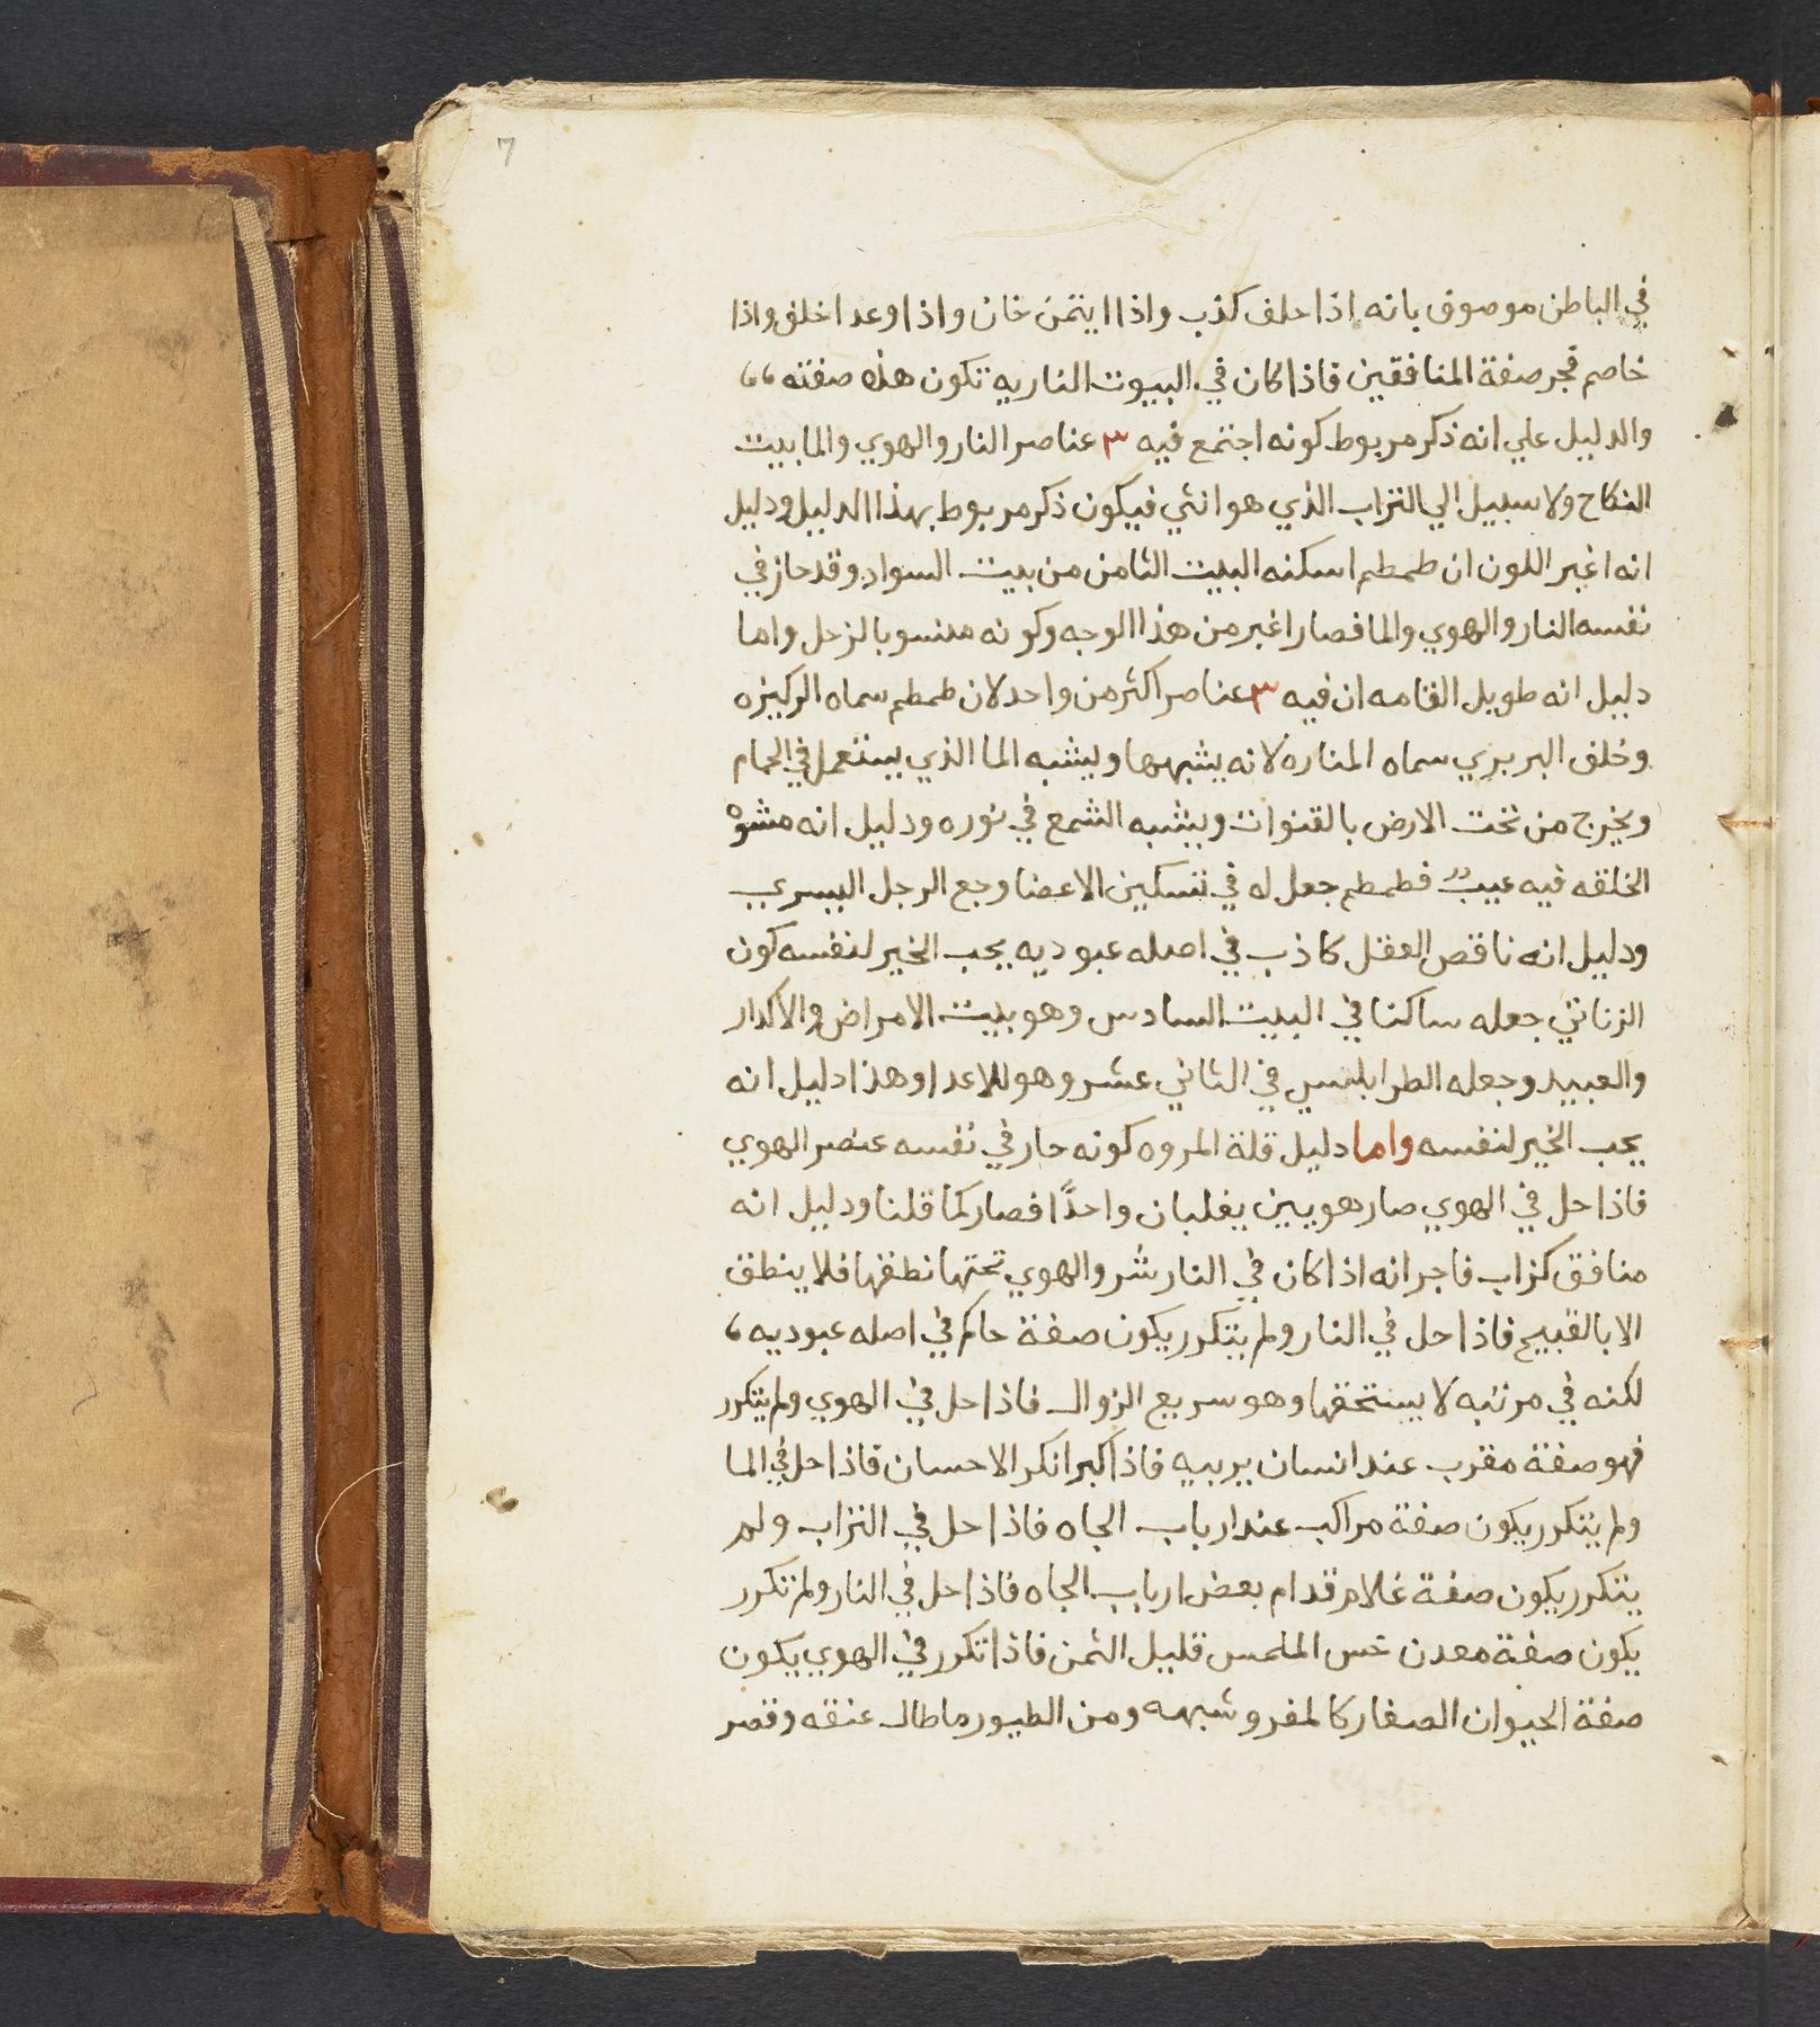 7
في الباطن موصوف بانه اذا حلف كذب واذا ايتمن خان واذا وعد اخلف واذا
خاصم فجر صفة المنافقين فاذا كان في البيوت الناريه تكون هذه صفته ،،
والدليل علي انه ذكر مربوط كونه اجتمع فيه ٣ عناصر النار والهوي والما بيت
النكاح ولا سبيل الي التراب الذي هو انثي فيكون ذكر مربوط بهذا الدليل ودليل
انه اغبر اللون ان طمطم اسكنه البيت الثامن من بيت السواد وقد حاز في
نفسه النار والهوي والما فصار اغبر من هذا الوجه وكونه منسوبا لزحل واما
دليل انه طويل القامه ان فيه ٣ عناصر اكثر من واحد لان طمطم سماه الركيزه
وخلف البربري سماه المناره لانه يشبهها ويشبه الما الذي يستعمل في الحمام
ويخرج من تحت الارض بالقنوات ويشبه الشمع في نوره ودليل انه مشوه
الخلقه فيه عيب فطمطم جعل له في تسكين الاعضا وجع الرجل اليسري
ودليل انه ناقص العقل كاذب في اصله عبوديه يحب الخير لنفسه كون
الزناتي جعله ساكنا في البيت السادس وهو بيت الامراض والاكدار
والعبيد وجعله الطرابلسي في الثاني عشر وهو للاعدا وهذا دليل انه
يحب الخير لنفسه واما دليل قلة المروه كونه حار في نفسه عنصر الهوي
فاذا حل في الهوي صار هويين يغلبان واحدًا فصار كما قلنا ودليل انه
منافق كزاب فاجر انه اذا كان في النار شر والهوي تحتها نطفها فلا ينطق
الا بالقبيح فاذا حل في النار ولم يتكرر يكون صفة حاكم في اصله عبوديه ،
لكنه في مرتبه لا يستحقها وهو سريع الزوال فاذا حل في الهوي ولم يتكرر
فهو صفة مقرب عند انسان يربيه فاذا كبر انكر الاحسان فاذا حل في الما
ولم يتكرر يكون صفة مراكب عند ارباب الجاه فاذا حل في التراب ولم
يتكرر يكون صفة غلام قدام بعض ارباب الجاه فاذا حل في النار ولم تكرر
يكون صفة معدن خس الملمس قليل الثمن فاذا تكرر في الهوي يكون
صفة الحيوان الصغار كالمفر وشبهه ومن الطيور ما طال عنقه وقصر